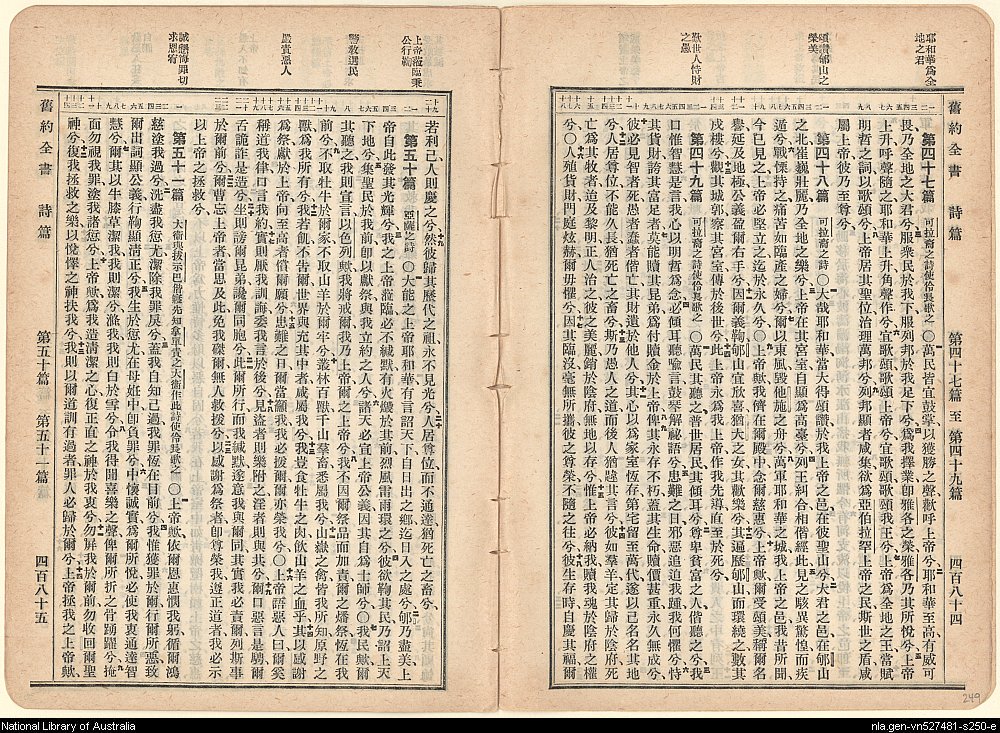 耶和華爲全
地之君
頌讚郇山之
榮美
歎世人恃財
之愚
舊約全書 詩篇 第四十七篇 至 第四十九篇 四百八十四
第四十七篇 可拉裔之詩使伶長歌之 ○萬民皆宜鼓掌以獲勝之聲歡呼上帝兮耶和華至高有威可
畏乃全地之大君兮服衆民於我下服列邦於我足下兮爲我擇業卽雅各之榮雅各乃其所悅兮上帝
上升呼聲隨之耶和華上升角聲作兮宜歌頌歌頌上帝宜歌頌歌頌我王兮上帝爲全地之王當賦
明哲之詞以歌頌兮上帝居其聖位治理萬邦兮列邦顯者咸集欲爲亞伯拉罕上帝之民斯世之盾咸
屬上帝彼乃至尊兮
第四十八篇 可拉裔之詩 ○大哉耶和華當大得頌讚於我上帝之邑在彼聖山兮大君之邑在郇山
之北崔巍壯麗乃全地之樂兮上帝在其宮室自顯爲高臺兮列王糾合相偕經此見之駭異驚惶而疾
遁兮戰慄持之痛苦如臨產之婦兮爾以東風毀他施之舟兮萬軍耶和華之城我上帝之邑我昔所聞
今已見之上帝必堅立之迄於永久兮○上帝歟我儕在爾殿中念爾慈惠兮上帝歟爾受頌美稱爾名
譽延及地極公義盈爾右手兮因爾義鞫郇山宜放喜猶大之女其歡樂兮其遍歷郇山而環繞之數其
戍樓兮觀其城郭察其宮室傳於後世兮此上帝永爲我上帝作我先導直至於死兮
第四十九篇 可拉裔之詩使伶長歌之 ○萬民其聽之普世居民其傾耳兮尊卑貧富之人偕聽之兮我
口惟智慧是言我心以明哲爲念必傾耳聽喻言鼓琴解祕語兮患難之日邪惡追迫我踵我何懼兮恃
其貨財誇其富足者莫能贖其昆弟爲付贖金於上帝俾其永存不朽蓋其生命贖價甚重永久無成兮
彼必見智者死愚者蠢者偕亡其財遺於他人兮其心以爲家室恆存第宅留至萬代遂以已名名其地
兮人居尊位不能久長猶死亡之畜兮斯乃愚人之道而後人猶韙其言兮彼如羣羊定其歸於陰府死
亡爲其牧者迨及黎明正人治之彼之美麗銷於陰府無地以存兮惟上帝必納我贖我魂於陰府之權
兮○人殖貨財門庭炫赫爾毋懼兮因其臨沒毫無所攜彼之尊榮不隨之往兮彼生存時自慶其福爾
上帝涖臨秉
公行鞫
警教選民
嚴責惡人
誠懇悔罪切
求恩宥
若利己人則慶之兮然彼歸其歷代之祖永不見光兮人居尊位而不通達猶死亡之畜兮
第五十篇 亞薩之詩 ○大能之上帝耶和華有言詔天下自日出之鄉迄日入之處兮郇乃盡美上
帝自此發其光輝兮我上帝涖臨必不緘默有火燬於其前烈風雷雨環之兮彼欲鞫其民乃詔上天
下地兮集聖民於我前卽以獻祭與我立約之人兮諸天必宣上帝公義因其自爲士師兮○我民歟
其聽之我則宣言以色列歟我將戒爾我乃上帝爾之上帝兮我不因爾祭品而加責爾之燔祭恆在我
前兮不取牡牛於爾家不取山羊於爾牢兮叢林百獸千山羣畜悉屬我兮山嶽之禽皆我所知原野之
獸爲我所有兮我若飢不告爾世界與充其中者咸屬我兮我豈食牡牛之肉飲山羊之血乎其以感謝
爲祭獻於上帝向至高者償爾願兮患難之日爾當籲我我必援爾爾亦榮我兮○上帝語惡人曰爾奚
稱道我律口言我約實則厭我訓誨委我言於後兮見盜者則樂附之淫者則與其分兮爾口惡言是騁爾
舌詭詐是造兮坐則謗爾昆弟讒爾同胞兮此爾所行而我緘默遂意我與爾同其實我必責爾列斯事
於爾前兮爾曹忘上帝者當思及此免我磔爾無人救援兮以感謝爲祭者卽尊榮我遵正道者我必示
以上帝之拯救兮
第五十一篇 大衛與拔示巴偕寢先知拿單責之大衛作此詩使伶長歌之 ○上帝歟依爾恩惠憫我躬循爾鴻
慈塗我過兮洗盡我愆尤潔除我罪戾兮蓋我自知己過我罪恆在目前兮我惟獲罪於爾行爾所惡致
爾出詞顯爾公義行鞫顯清正兮我生於愆尤在母妊中卽負罪兮中懷誠實爲爾所悅必使我衷通達智
慧兮爾其以牛膝草潔我我則潔兮滌我我則白於雪兮令我得聞喜樂之聲俾爾所折之骨踴躍兮掩
面勿視我罪塗我諸愆兮上帝歟爲我造清潔之心復正直之神於我衷兮勿屛我於爾前勿收回爾聖
神兮復我拯救之樂以悅懌之神扶我兮我則以爾道訓有過者罪人必歸於爾兮上帝拯我之上帝歟
舊約全書 詩篇 第五十篇 第五十一篇 四百八十五
249
National Library of Australia
nla.gen-vn527481-s250-e